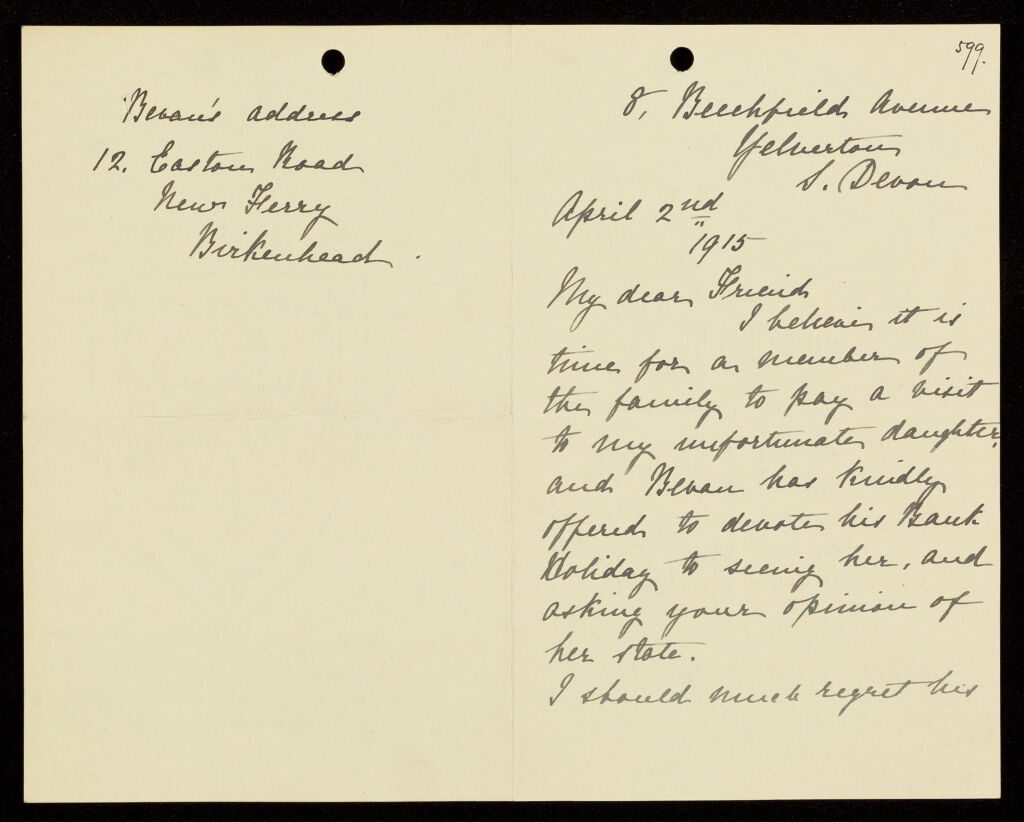 Bevan's address
12. Easton Road
New Ferry
Birkenhead.
599.
8, Beechfield Avenue
Yelverton
S. Devon
April 2nd
1915
My dear Friend
I believe it is
time for a member of
the family to pay a visit
to my unfortunate daughter,
and Bevan has kindly
offered to devote his Bank
Holiday to seeing her, and
asking your opinion of
her state.
I should much regret his